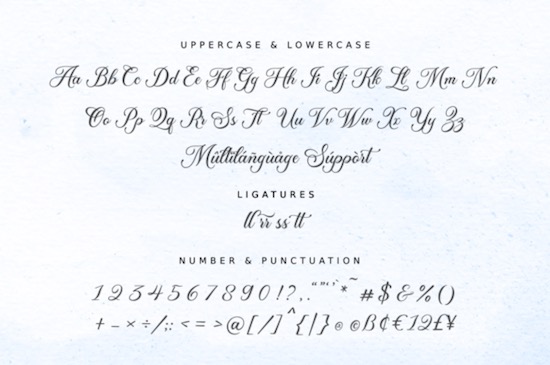 UPPERCASE & LOWERCASE
Aa Bb Cc Dd Ee Ff Gg Hh Ii Jj Kk Ll Mm Nn
Oo Pp Qq Rr Ss Tt Uu Vv Ww Xx Yy Zz
Múltîláñgùáge Súppòrt
LIGATURES
ll rr ss tt
NUMBER & PUNCTUATION
1 2 3 4 5 6 7 8 9 0 ! ? , . “ ” ‘ ’ ` * ~ # $ & % ( )
+ – × ÷ / : ; < = > @ [ / ] ^ { | } ® © ß ¢ € 1 2 £ ¥